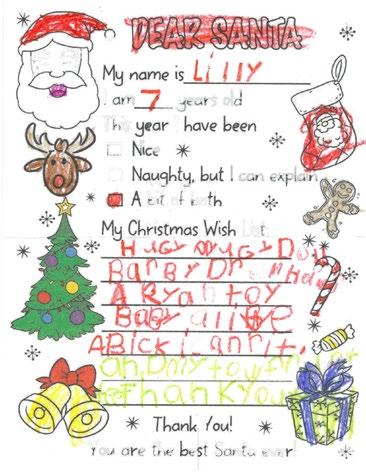 DEAR SANTA
My name is Lilly
I am 7 years old
This year I have been
Nice
Naughty, but I can explain
A bit of both
My Christmas Wish List
Hugy
Barby Drem
A Ryan toy
Baby alive
A Bick
Thank You
Thank You!
You are the best Santa ever!